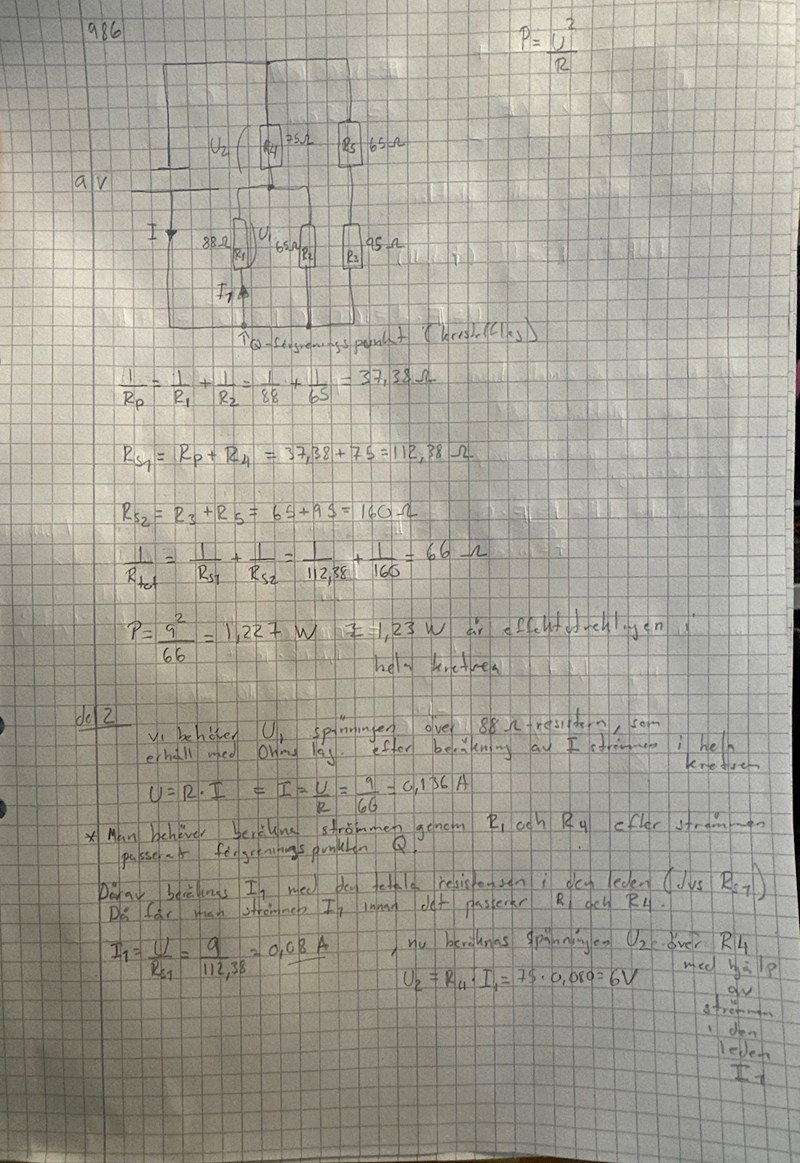 986
P = U²/R
U₂ R4 75Ω R5 65Ω
9 V
I 88Ω R1 U₁ 65Ω R2 R3 95Ω
I₁
↑Q-förgrenings punkt
1/Rp = 1/R₁ + 1/R₂ = 1/88 + 1/65 = 37,38 Ω
Rs₁ = Rp + R4 = 37,38 + 75 = 112,38 Ω
Rs₂ = R3 + R5 = 65 + 95 = 160 Ω
1/Rtot = 1/Rs₁ + 1/Rs₂ = 1/112,38 + 1/160 = 66 Ω
P = 9²/66 = 1,227 W ≈ 1,23 W är i
hela kretsen
del 2
vi behöver U₁ spänningen över 88 Ω-resistorn, som
erhåll med Ohms lag. efter beräkning av I strömmen i hela
kretsen
U = R · I = I = U/R = 9/66 = 0,136 A
* Man behöver beräkna strömmen genom R₁ och R4 efter strömmen
passerat förgrenings punkten Q.
Därav beräknas I₁ med den totala resistansen i den leden (dvs Rs₁)
Då får man strömmen I₁ innan det passerar R₁ och R4.
I₁ = U/Rs₁ = 9/112,38 = 0,08 A , nu beräknas spänningen U₂ över R4
med hjälp
U₂ = R4 · I₁ = 75 · 0,080 = 6V
av
strömmen
i den
leden
I₁